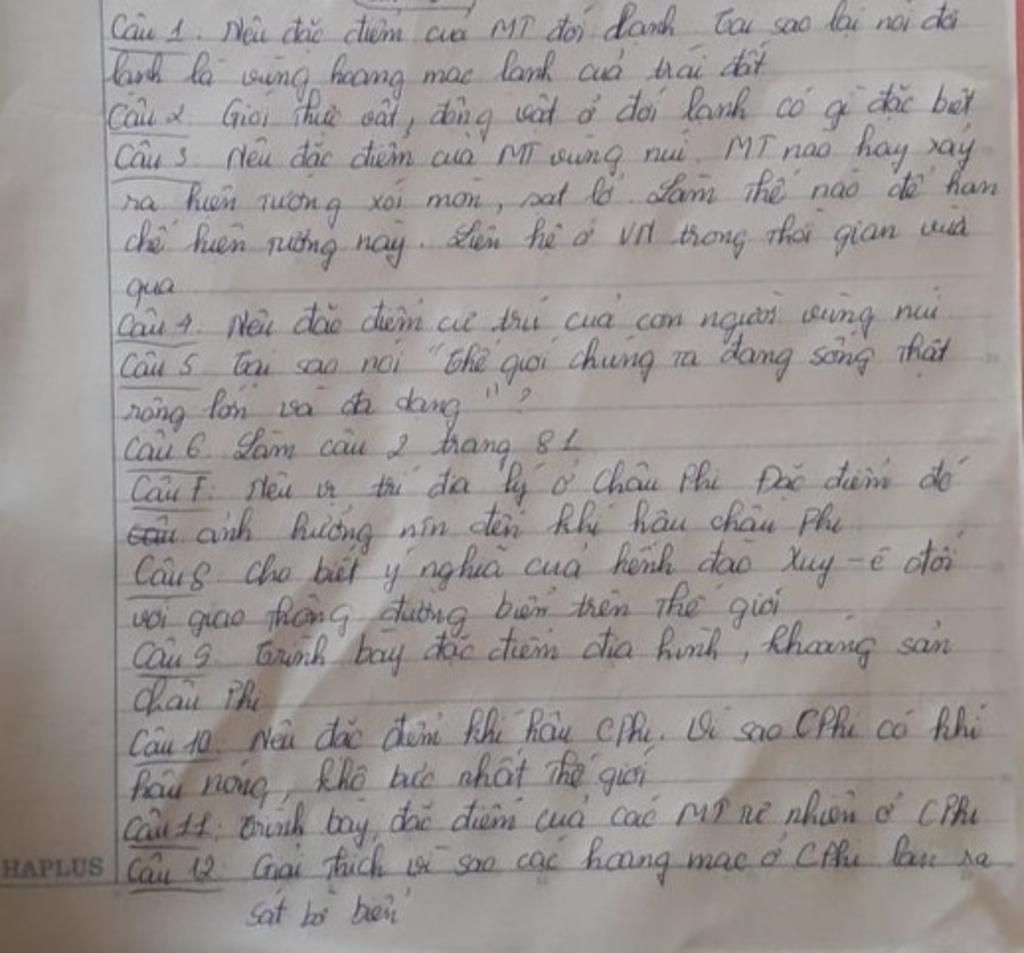 Câu 1. Nêu đặc điểm của MT đới lạnh Tại sao lại nói đới
lạnh là vùng hoang mạc lạnh của trái đất
Câu 2 Giới thực vật, động vật ở đới lạnh có gì đặc biệt
Câu 3 Nêu đặc điểm của MT vùng núi. MT nào hay xảy
ra hiện tượng xói mòn, sạt lở. Làm thế nào để hạn
chế hiện tượng này. Liên hệ ở VN trong thời gian vừa
qua
Câu 4. Nêu đặc điểm cư trú của con người vùng núi
Câu 5 Tại sao nói "Thế giới chúng ta đang sống thật
rộng lớn và đa dạng"?
Câu 6. Làm câu 2 trang 81
Câu 7: Nêu vị trí địa lý ở Châu Phi Đặc điểm đó
ảnh hưởng nín đến khí hậu châu Phi
Câu 8 Cho biết ý nghĩa của kênh đào Xuy-ê đối
với giao thông đường biển trên thế giới
Câu 9. Trình bày đặc điểm địa hình, khoáng sản
Châu Phi
Câu 10. Nêu đặc điểm khí hậu CPhi. Vì sao CPhi có khí
hậu nóng, khô bức nhất thế giới
Câu 11: Trình bày, đặc điểm của các MT tự nhiên ở CPhi
HAPLUS Câu 12 Giải thích vì sao các hoang mạc ở CPhi lan ra
sát bờ biển